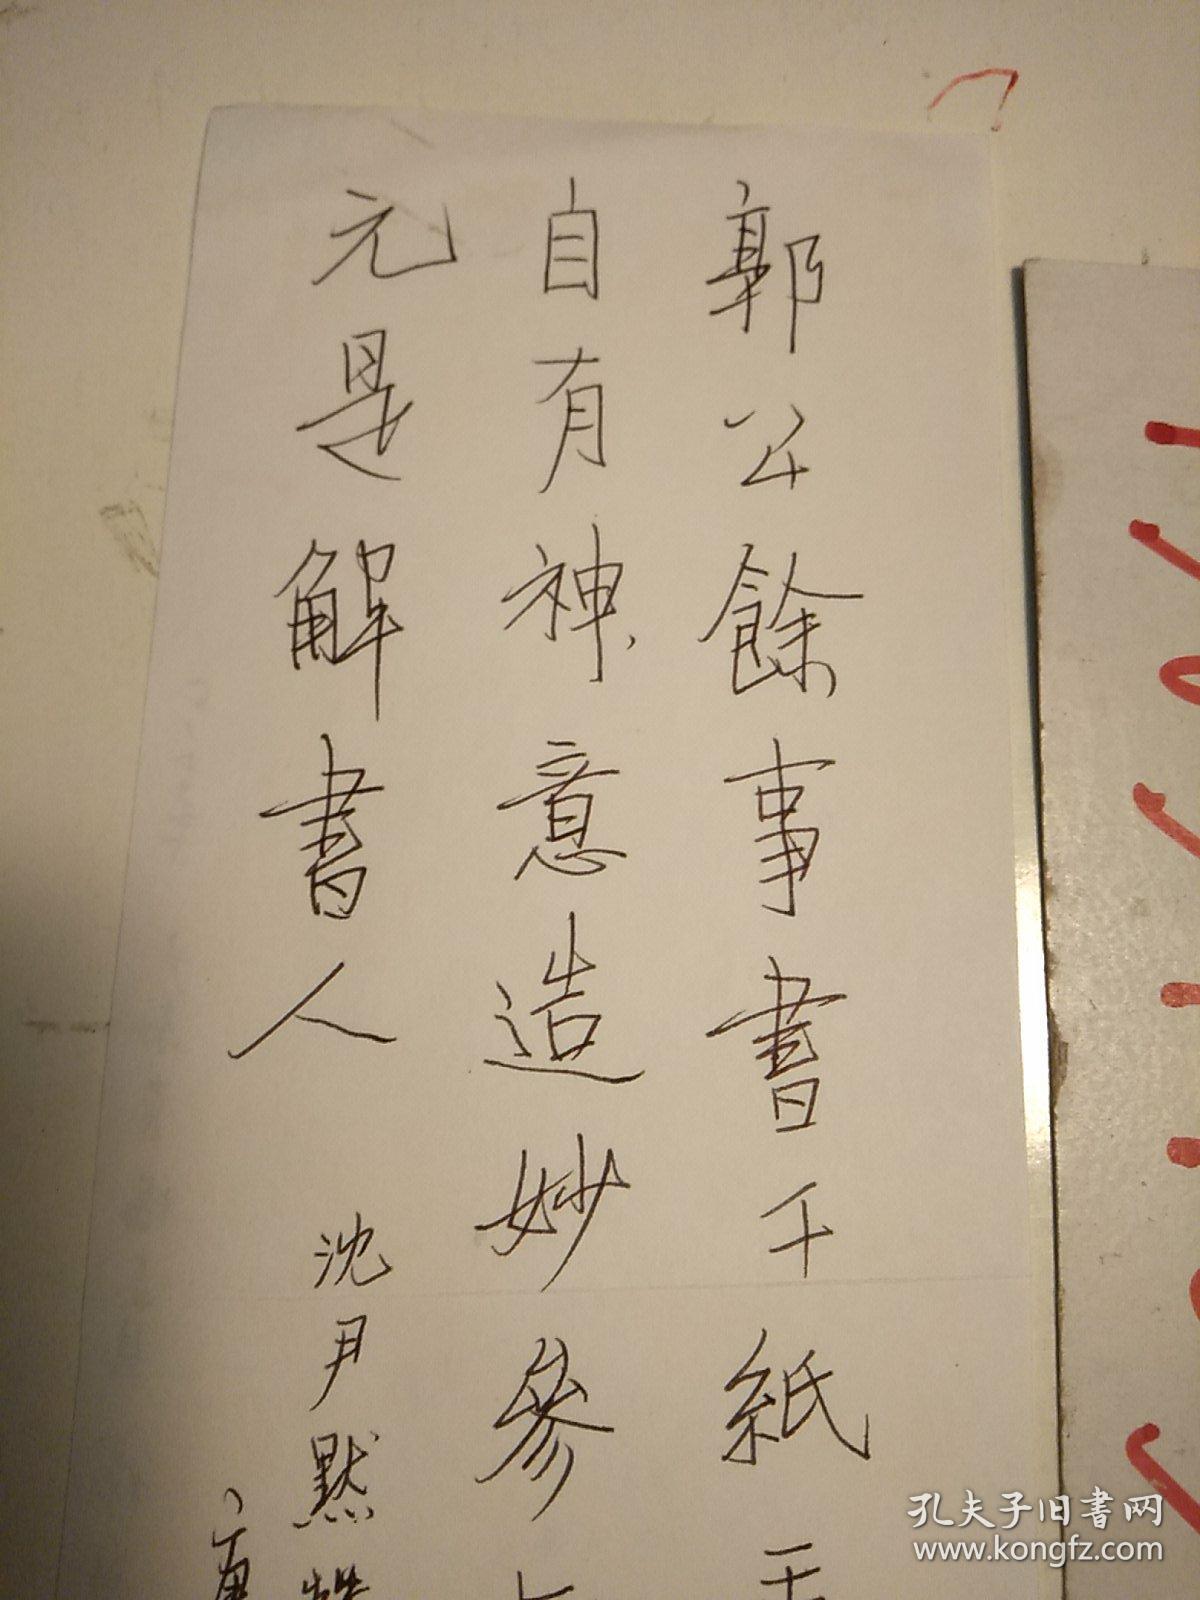 郭公餘事書千紙
自有神意造妙參
元是解書人
沈尹默
孔夫子旧書网
www.kongfz.com